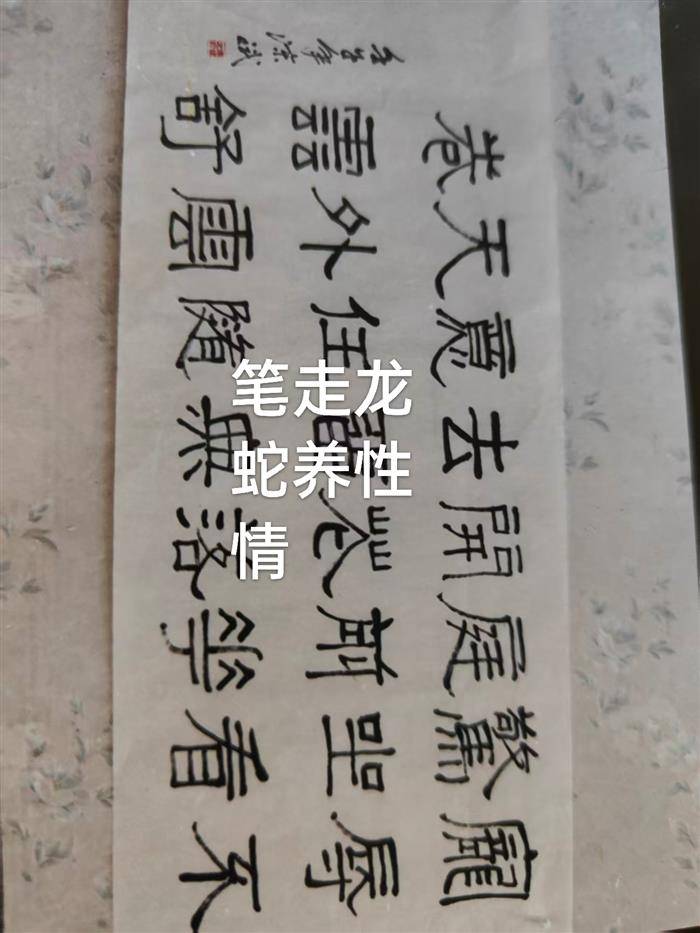 寵辱不
驚坐看
庭前華
開花落
去留無
意任隨
天外雲
卷雲舒
笔走龙
蛇养性
情